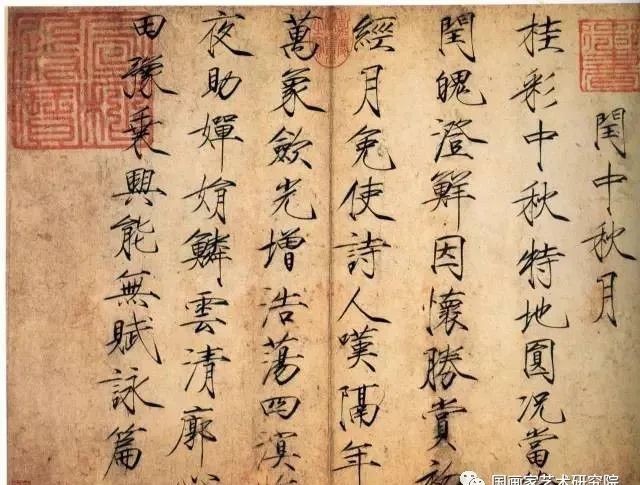 閏中秋月
桂彩中秋特地圓况當
閏魄澄鮮因懷勝賞
經月免使詩人嘆隔年
萬象歛光增浩蕩四溟
夜助嬋娟鱗雲清廓
田豫乘興能無賦詠篇
国画家艺术研究院